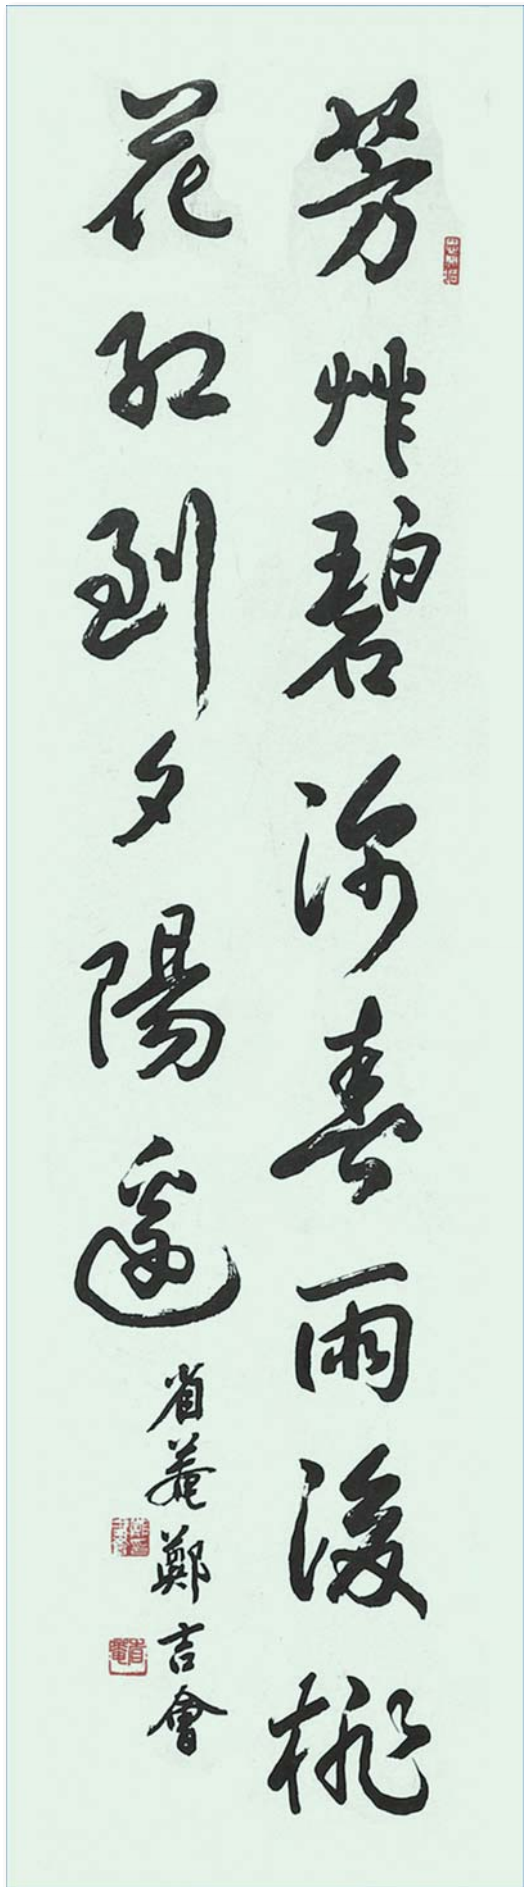 芳艸碧深春雨後桃
花紅到夕陽邊
省菴鄭吉會